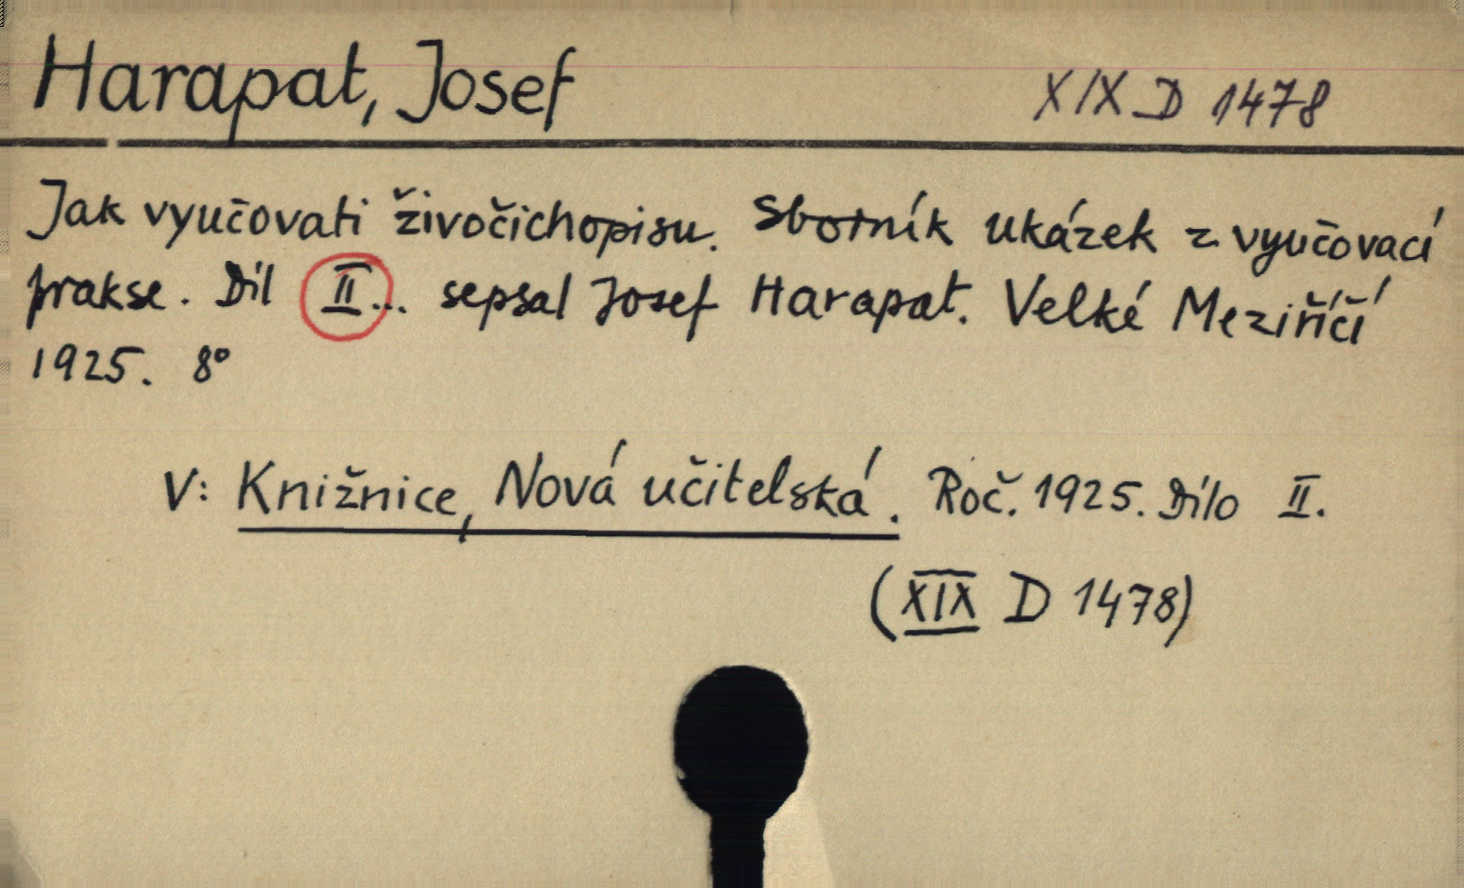 Harapat, Josef XIX D 1478
Jak vyučovati živočichopisu. Sborník ukázek z vyučovací
prakse. Díl II... sepsal Josef Harapat. Velké Meziříčí
1925. 8°
V: Knižnice, Nová učitelská. Roč. 1925. Dílo II.
(XIX D 1478)